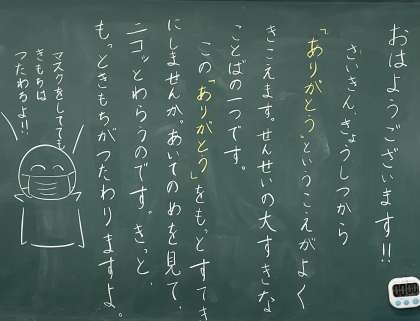 おはようございます!!
さいきん、きょうしつから
「ありがとう」というこえがよく
きこえます。せんせいの大すきな
ことばの一つです。
この「ありがとう」をもっとすてき
にしませんか。あいてのめを見て、
ニコッとわらうのです。きっと、
もっときもちがつたわりますよ。
マスクをしてても
きもちは
つたわるよ!!